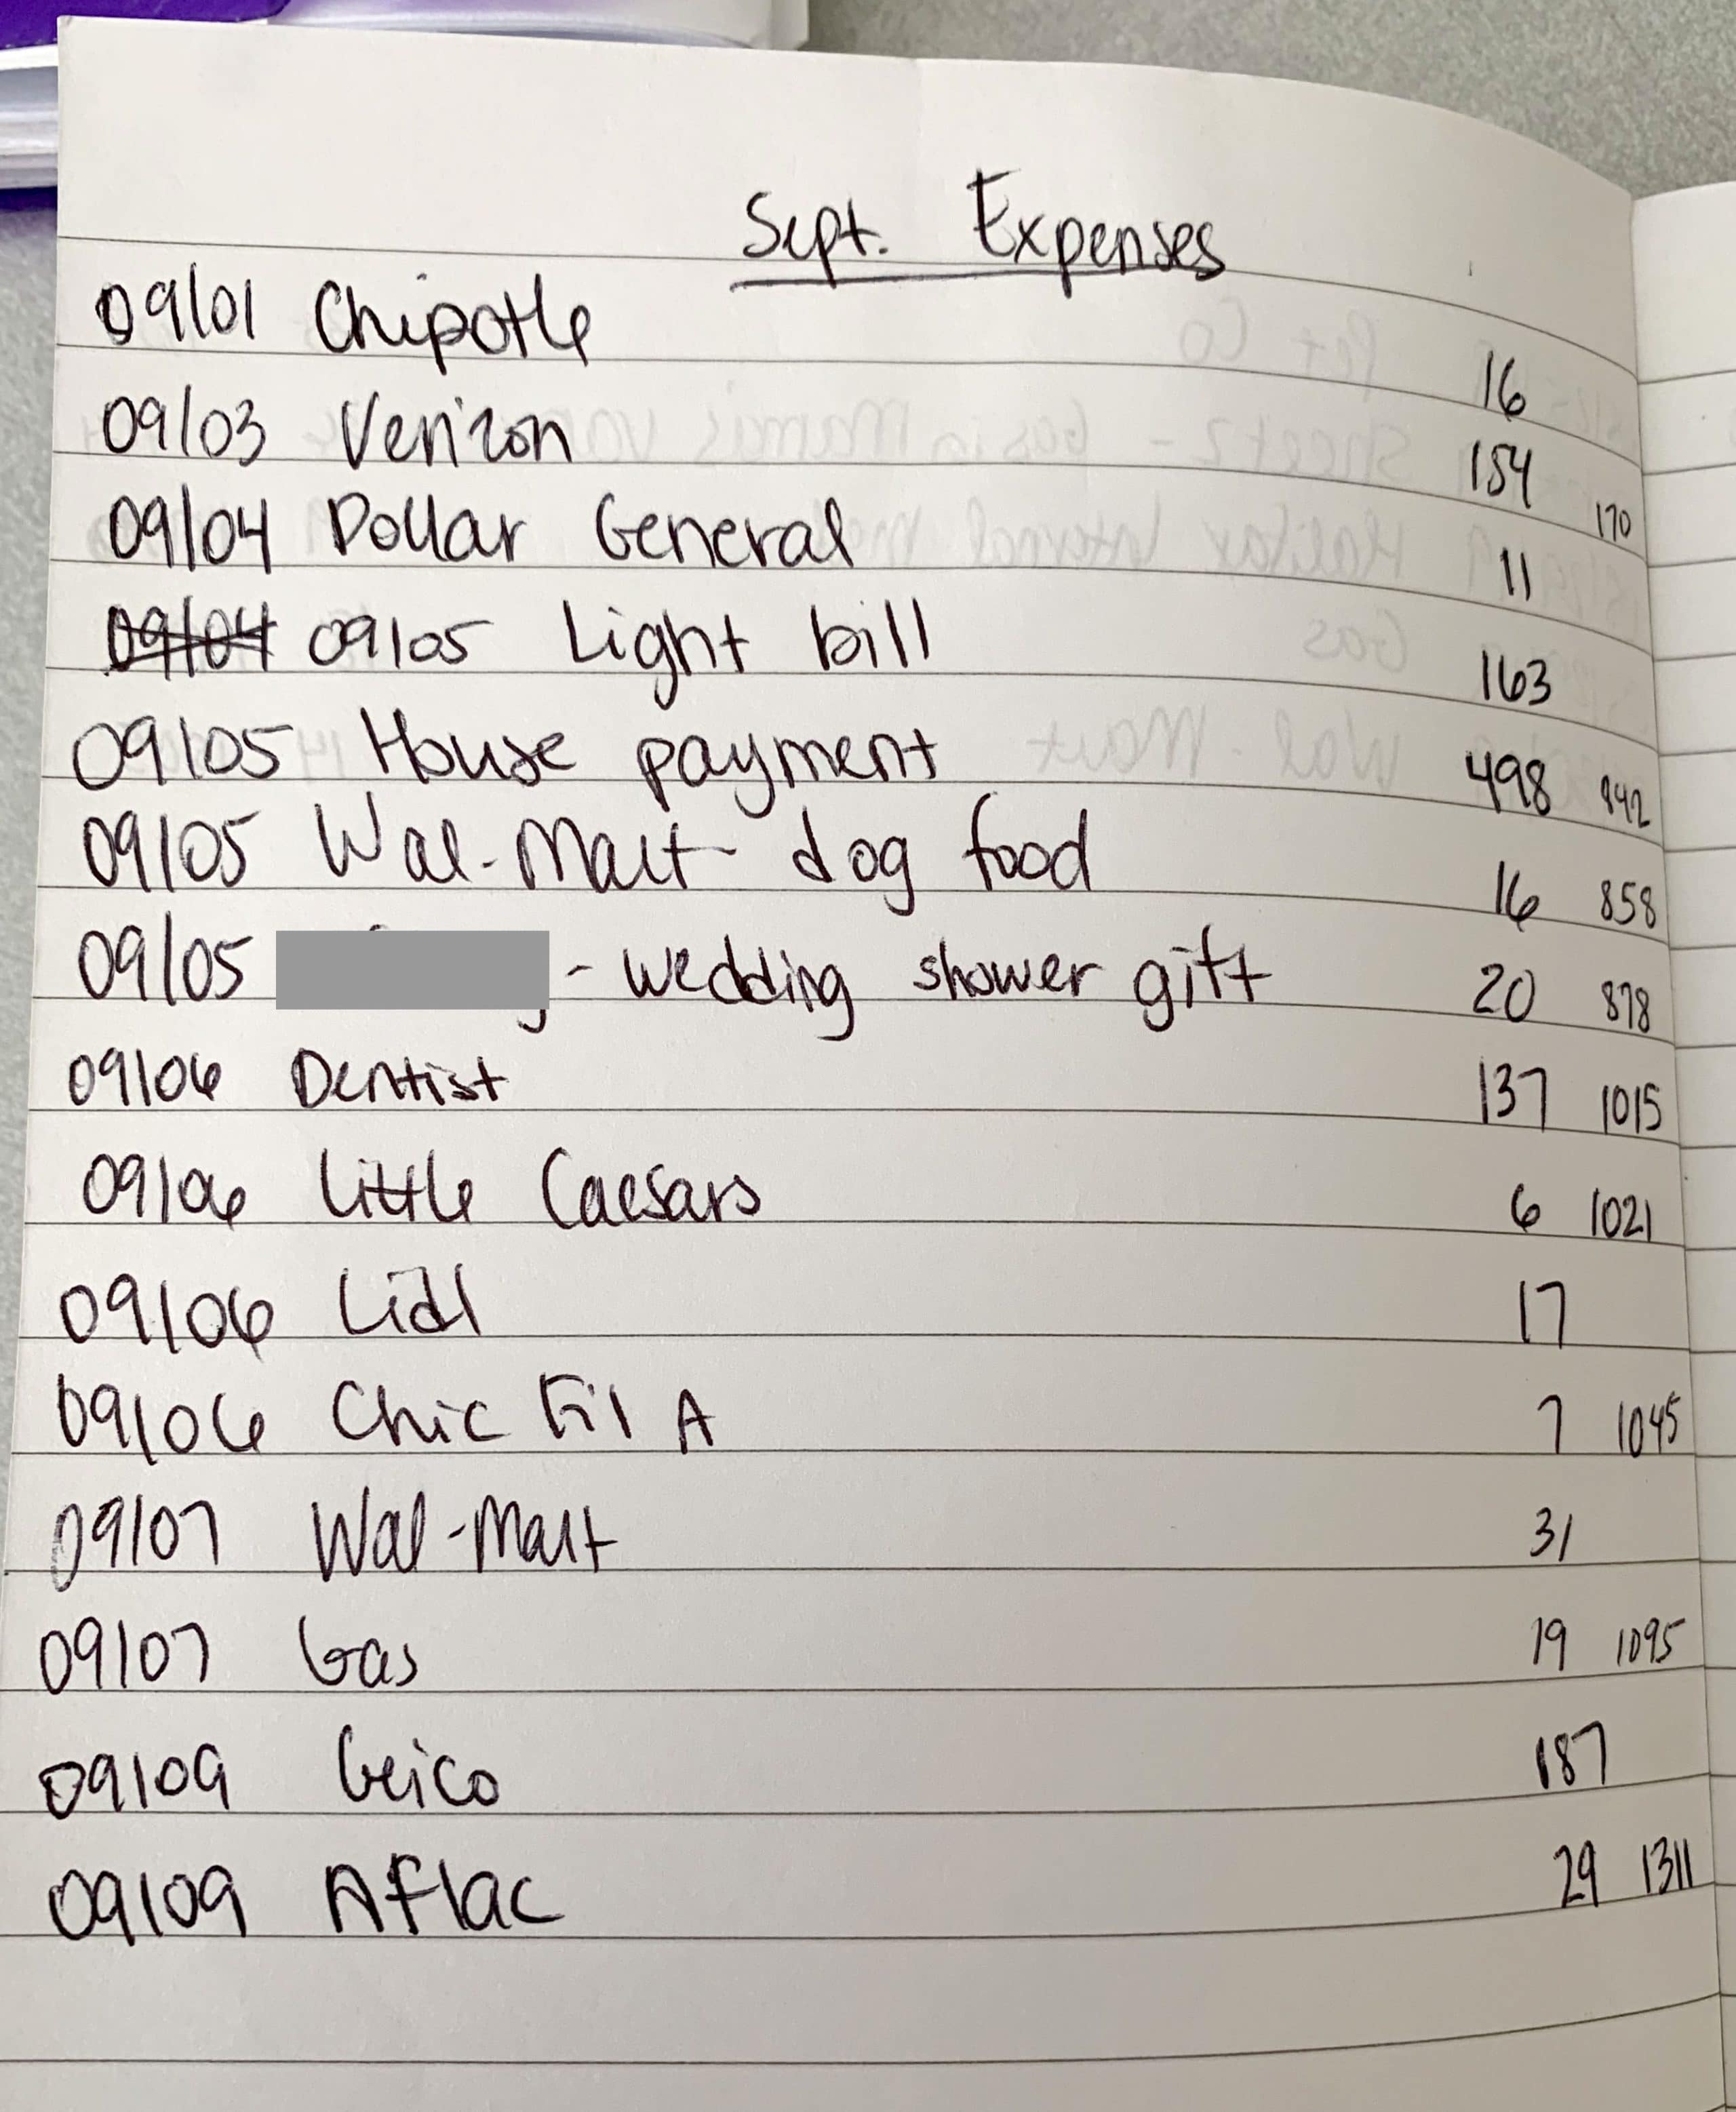 Sept. Expenses
09/01 Chipotle 16
09/03 Verizon 154 170
09/04 Dollar General 11
09/04 09/05 Light bill 163
09/05 House payment 498 842
09/05 Wal-Mart dog food 16 858
09/05 - wedding shower gift 20 878
09/06 Dentist 137 1015
09/06 Little Caesars 6 1021
09/06 Lidl 17
09/06 Chic Fil A 7 1045
09/07 Wal-Mart 31
09/07 Gas 19 1095
09/09 Geico 187
09/09 Aflac 29 1311